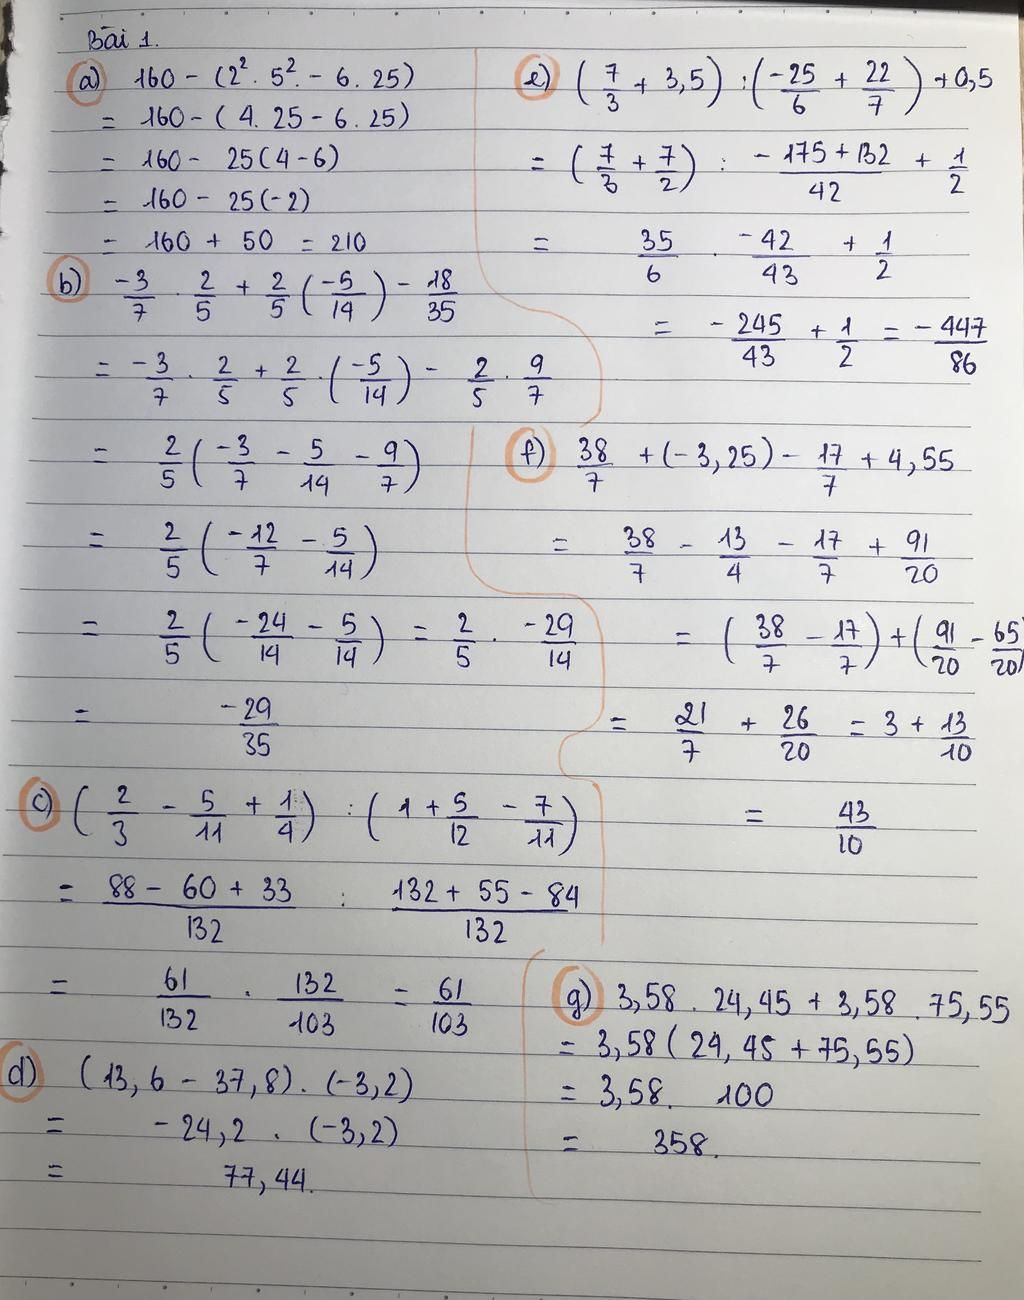 Bài 1.
a) 160 - (2². 5² - 6. 25)
= 160 - (4. 25 - 6. 25)
= 160 - 25(4-6)
= 160 - 25(-2)
= 160 + 50 = 210
b) -3/7 . 2/5 + 2/5 (-5/14) - 18/35
= -3/7 . 2/5 + 2/5 . (-5/14) - 2/5 . 9/7
= 2/5 (-3/7 - 5/14 - 9/7)
= 2/5 (-12/7 - 5/14)
= 2/5 (-24/14 - 5/14) = 2/5 . -29/14
= -29/35
c) (2/3 - 5/11 + 1/4) : (1 + 5/12 - 7/11)
= 88 - 60 + 33/132 : 132 + 55 - 84/132
= 61/132 . 132/103 = 61/103
d) (13,6 - 37,8). (-3,2)
= -24,2 . (-3,2)
= 77,44.
e) (7/3 + 3,5) : (-25/6 + 22/7) + 0,5
= (7/3 + 7/2) : -175 + 132/42 + 1/2
= 35/6 . -42/43 + 1/2
= -245/43 + 1/2 = -447/86
f) 38/7 + (-3,25) - 17/7 + 4,55
= 38/7 - 13/4 - 17/7 + 91/20
= (38/7 - 17/7) + (91/20 - 65/20)
= 21/7 + 26/20 = 3 + 13/10
= 43/10
g) 3,58 . 24,45 + 3,58 . 75,55
= 3,58 (24,45 + 75,55)
= 3,58. 100
= 358.